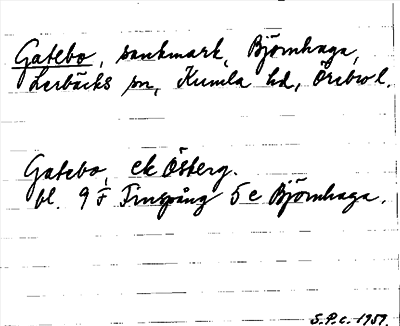 Gatebo, sankmark, Björnhaga,
Lerbäcks sn, Kumla hd, Örebro l.
Gatebo, ek Österg.
bl. 9 F Finspång 5 e Björnhaga.
S.P.c. 1951.